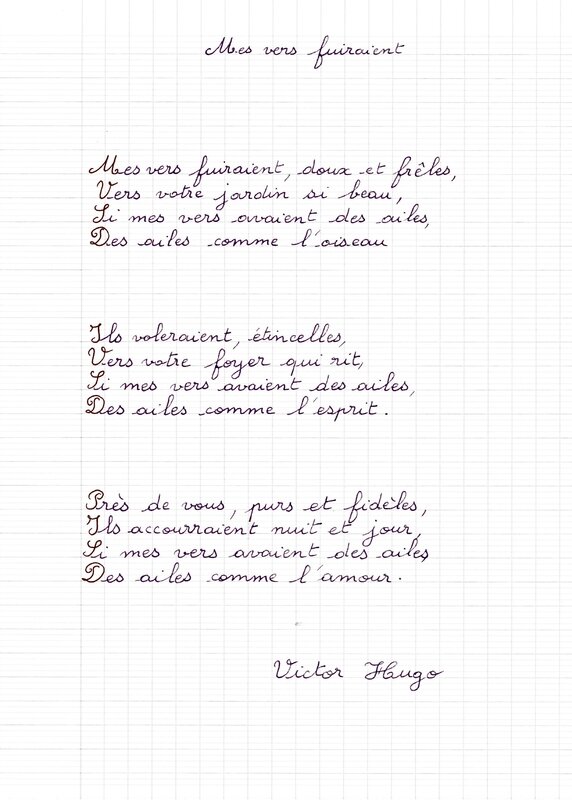 Mes vers fuiraient
Mes vers fuiraient, doux et frêles,
Vers votre jardin si beau,
Si mes vers avaient des ailes,
Des ailes comme l'oiseau
Ils voleraient, étincelles,
Vers votre foyer qui rit,
Si mes vers avaient des ailes,
Des ailes comme l'esprit.
Près de vous, purs et fidèles,
Ils accourraient nuit et jour,
Si mes vers avaient des ailes,
Des ailes comme l'amour.
Victor Hugo